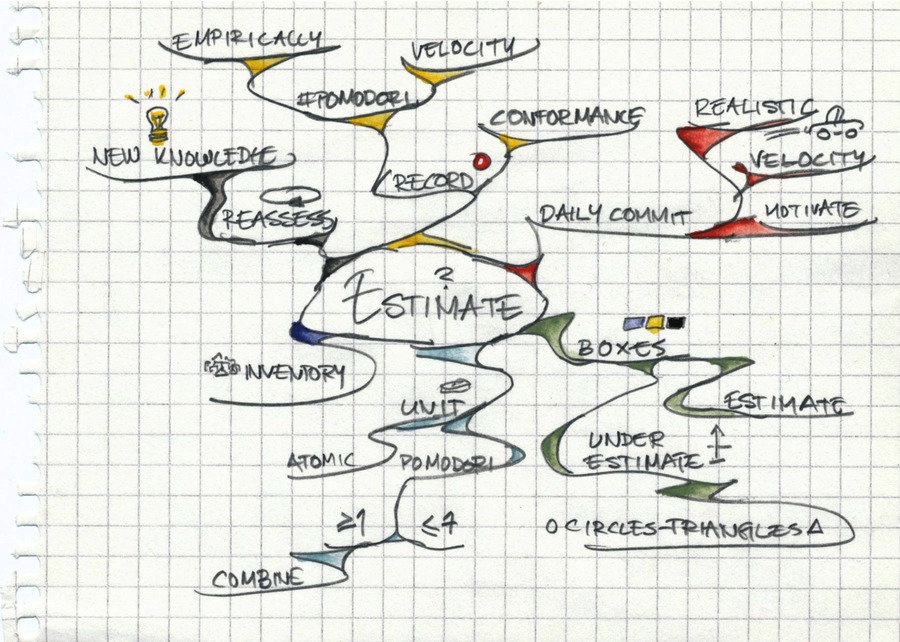 EMPIRICALLY
VELOCITY
#POMODORI
CONFORMANCE
REALISTIC
NEW KNOWLEDGE
RECORD
VELOCITY
REASSESS
DAILY COMMIT
MOTIVATE
?
ESTIMATE
INVENTORY
BOXES
UNIT
ESTIMATE
ATOMIC
POMODORI
UNDER
ESTIMATE
≥1
≤7
O CIRCLES-TRIANGLES Δ
COMBINE